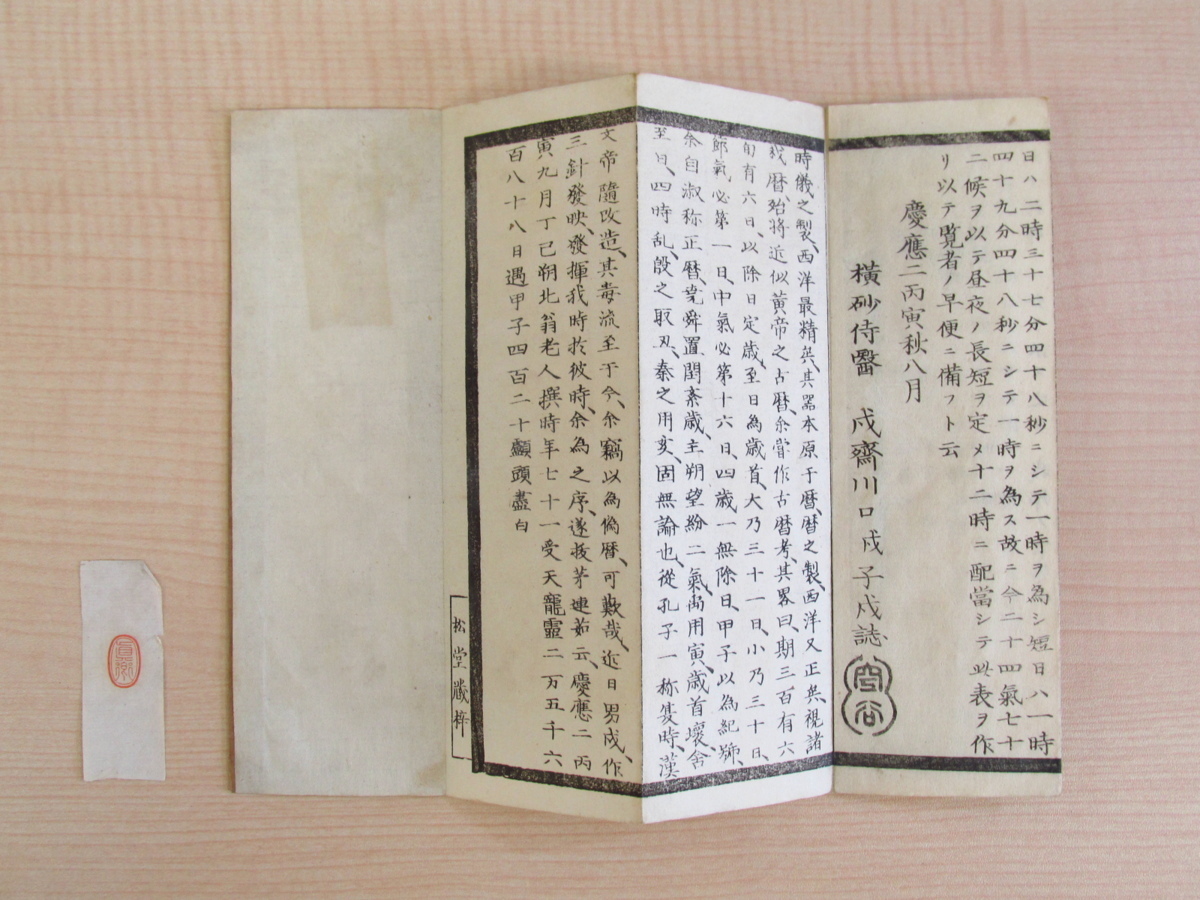 日ハ二時三十七分四十八秒ニシテ一時ヲ為シ短日ハ一時
四十九分四十八秒ニシテ一時ヲ為ス故ニ今二十四氣七十
二候ヲ以テ昼夜ノ長短ヲ定メ十二時ニ配當シテ此表ヲ作
リ以テ覧者ノ早便ニ備フト云
慶應二丙寅秋八月
橫砂侍醫 戍齋川口戍子戍誌
時儀之製西洋最精矣其器本原于暦暦之製西洋又正矣視諸
我暦殆將近似黄帝之古暦余嘗作古暦考其畧曰期三百有六
旬有六日以除日定歳至日為歳首大乃三十一日小乃三十日
節氣必第一日中氣必第十六日四歳一無除日甲子以為紀號
余自淑称正暦堯舜置閏紊歳主朔望紛二氣禹用寅歳首壊舍
至日四時乱殷之取丑秦之用亥固無論也從孔子一称夏時漢
文帝隨改造其毒流至于今余竊以為偽暦可歎哉近日男戍作
三針發映發揮我時於彼時余為之序遂拔茅連茹云慶應二丙
寅九月丁己朔北翁老人撰時年七十一受天寵靈二万五千六
百八十八日遇甲子四百二十顱頭盡白
松堂